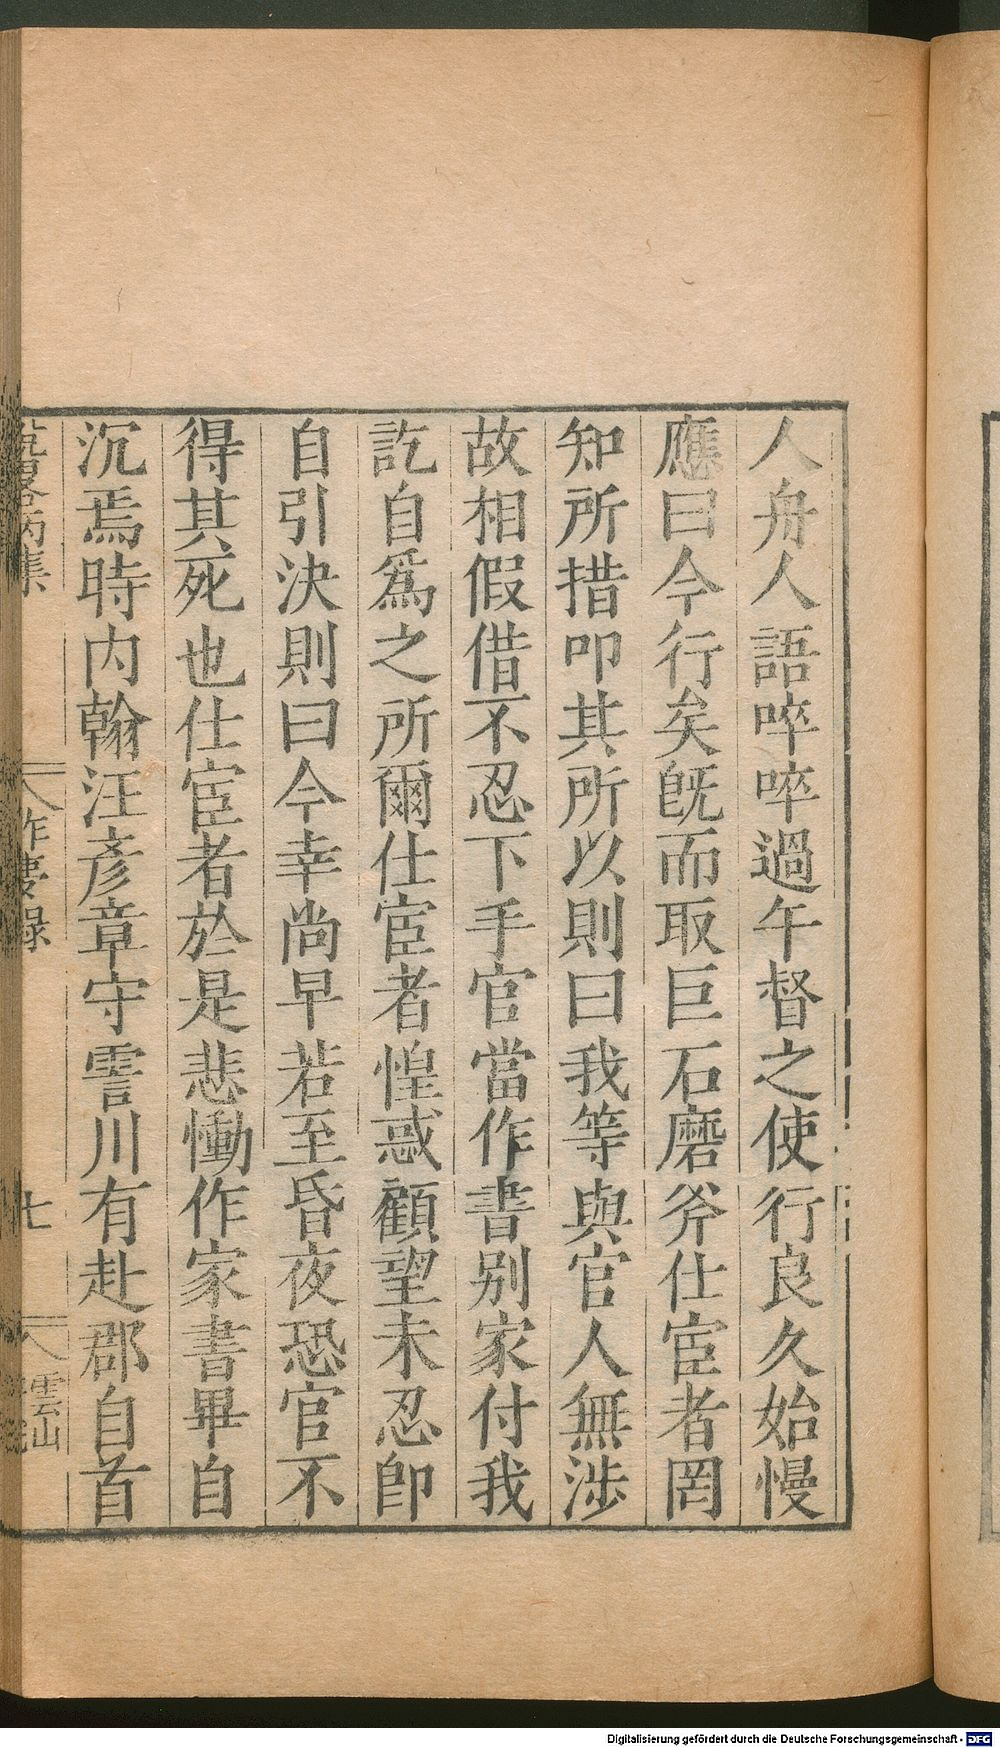 人舟人語啐啐過午督之使行良久始慢
應曰今行矣旣而取巨石磨斧仕宦者罔
知所措叩其所以則曰我等與官人無涉
故相假借不忍下手官當作書别家付我
訖自爲之所爾仕宦者惶惑顧望未忍卽
自引決則曰今幸尚早若至昏夜恐官不
得其死也仕宦者於是悲慟作家書畢自
沉焉時内翰汪彥章守霅川有赴郡自首
昨夢録
七
雲山
Digitalisierung gefördert durch die Deutsche Forschungsgemeinschaft - DFG